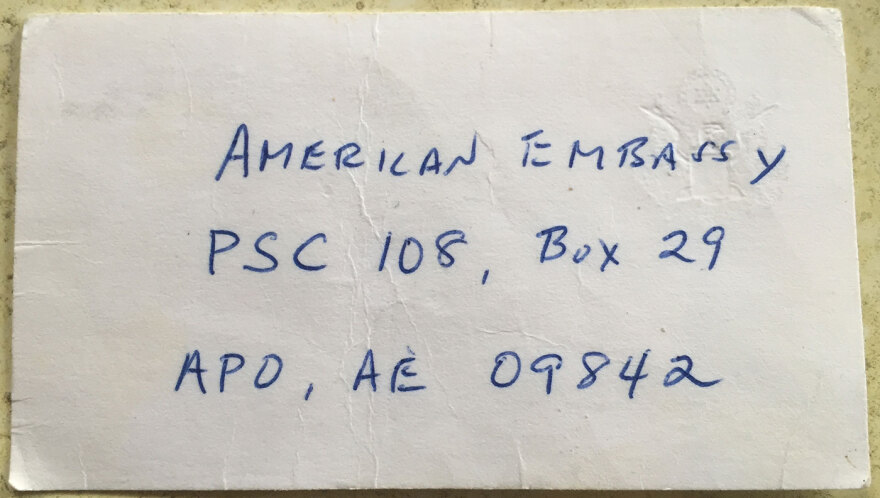 AMERICAN EMBASSY
PSC 108, Box 29
APO, AE 09842